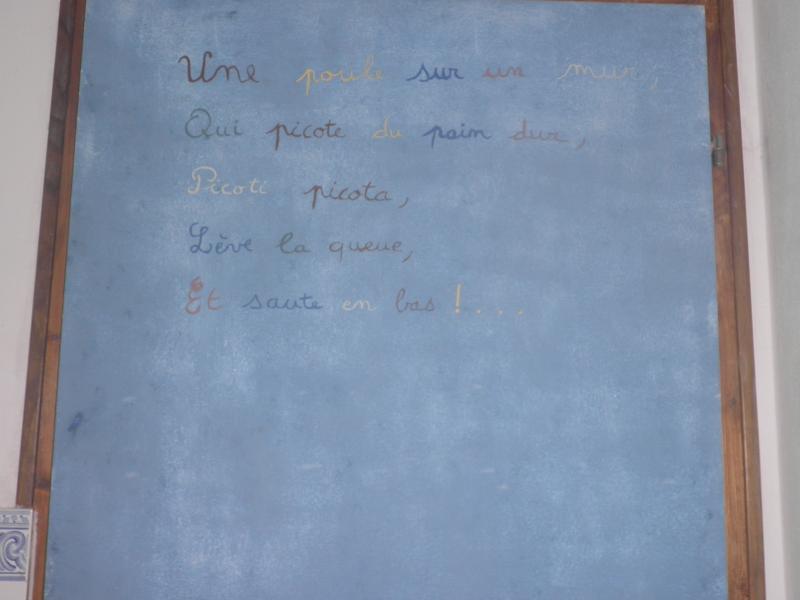 Une poule sur un mur,
Qui picote du pain dur,
Picoti picota,
Lève la queue,
Et saute en bas !...